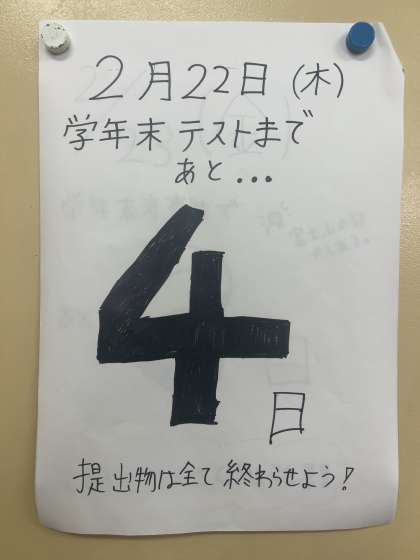 2月22日(木)
学年末テストまで
あと...
4
日
提出物は全て終わらせよう!